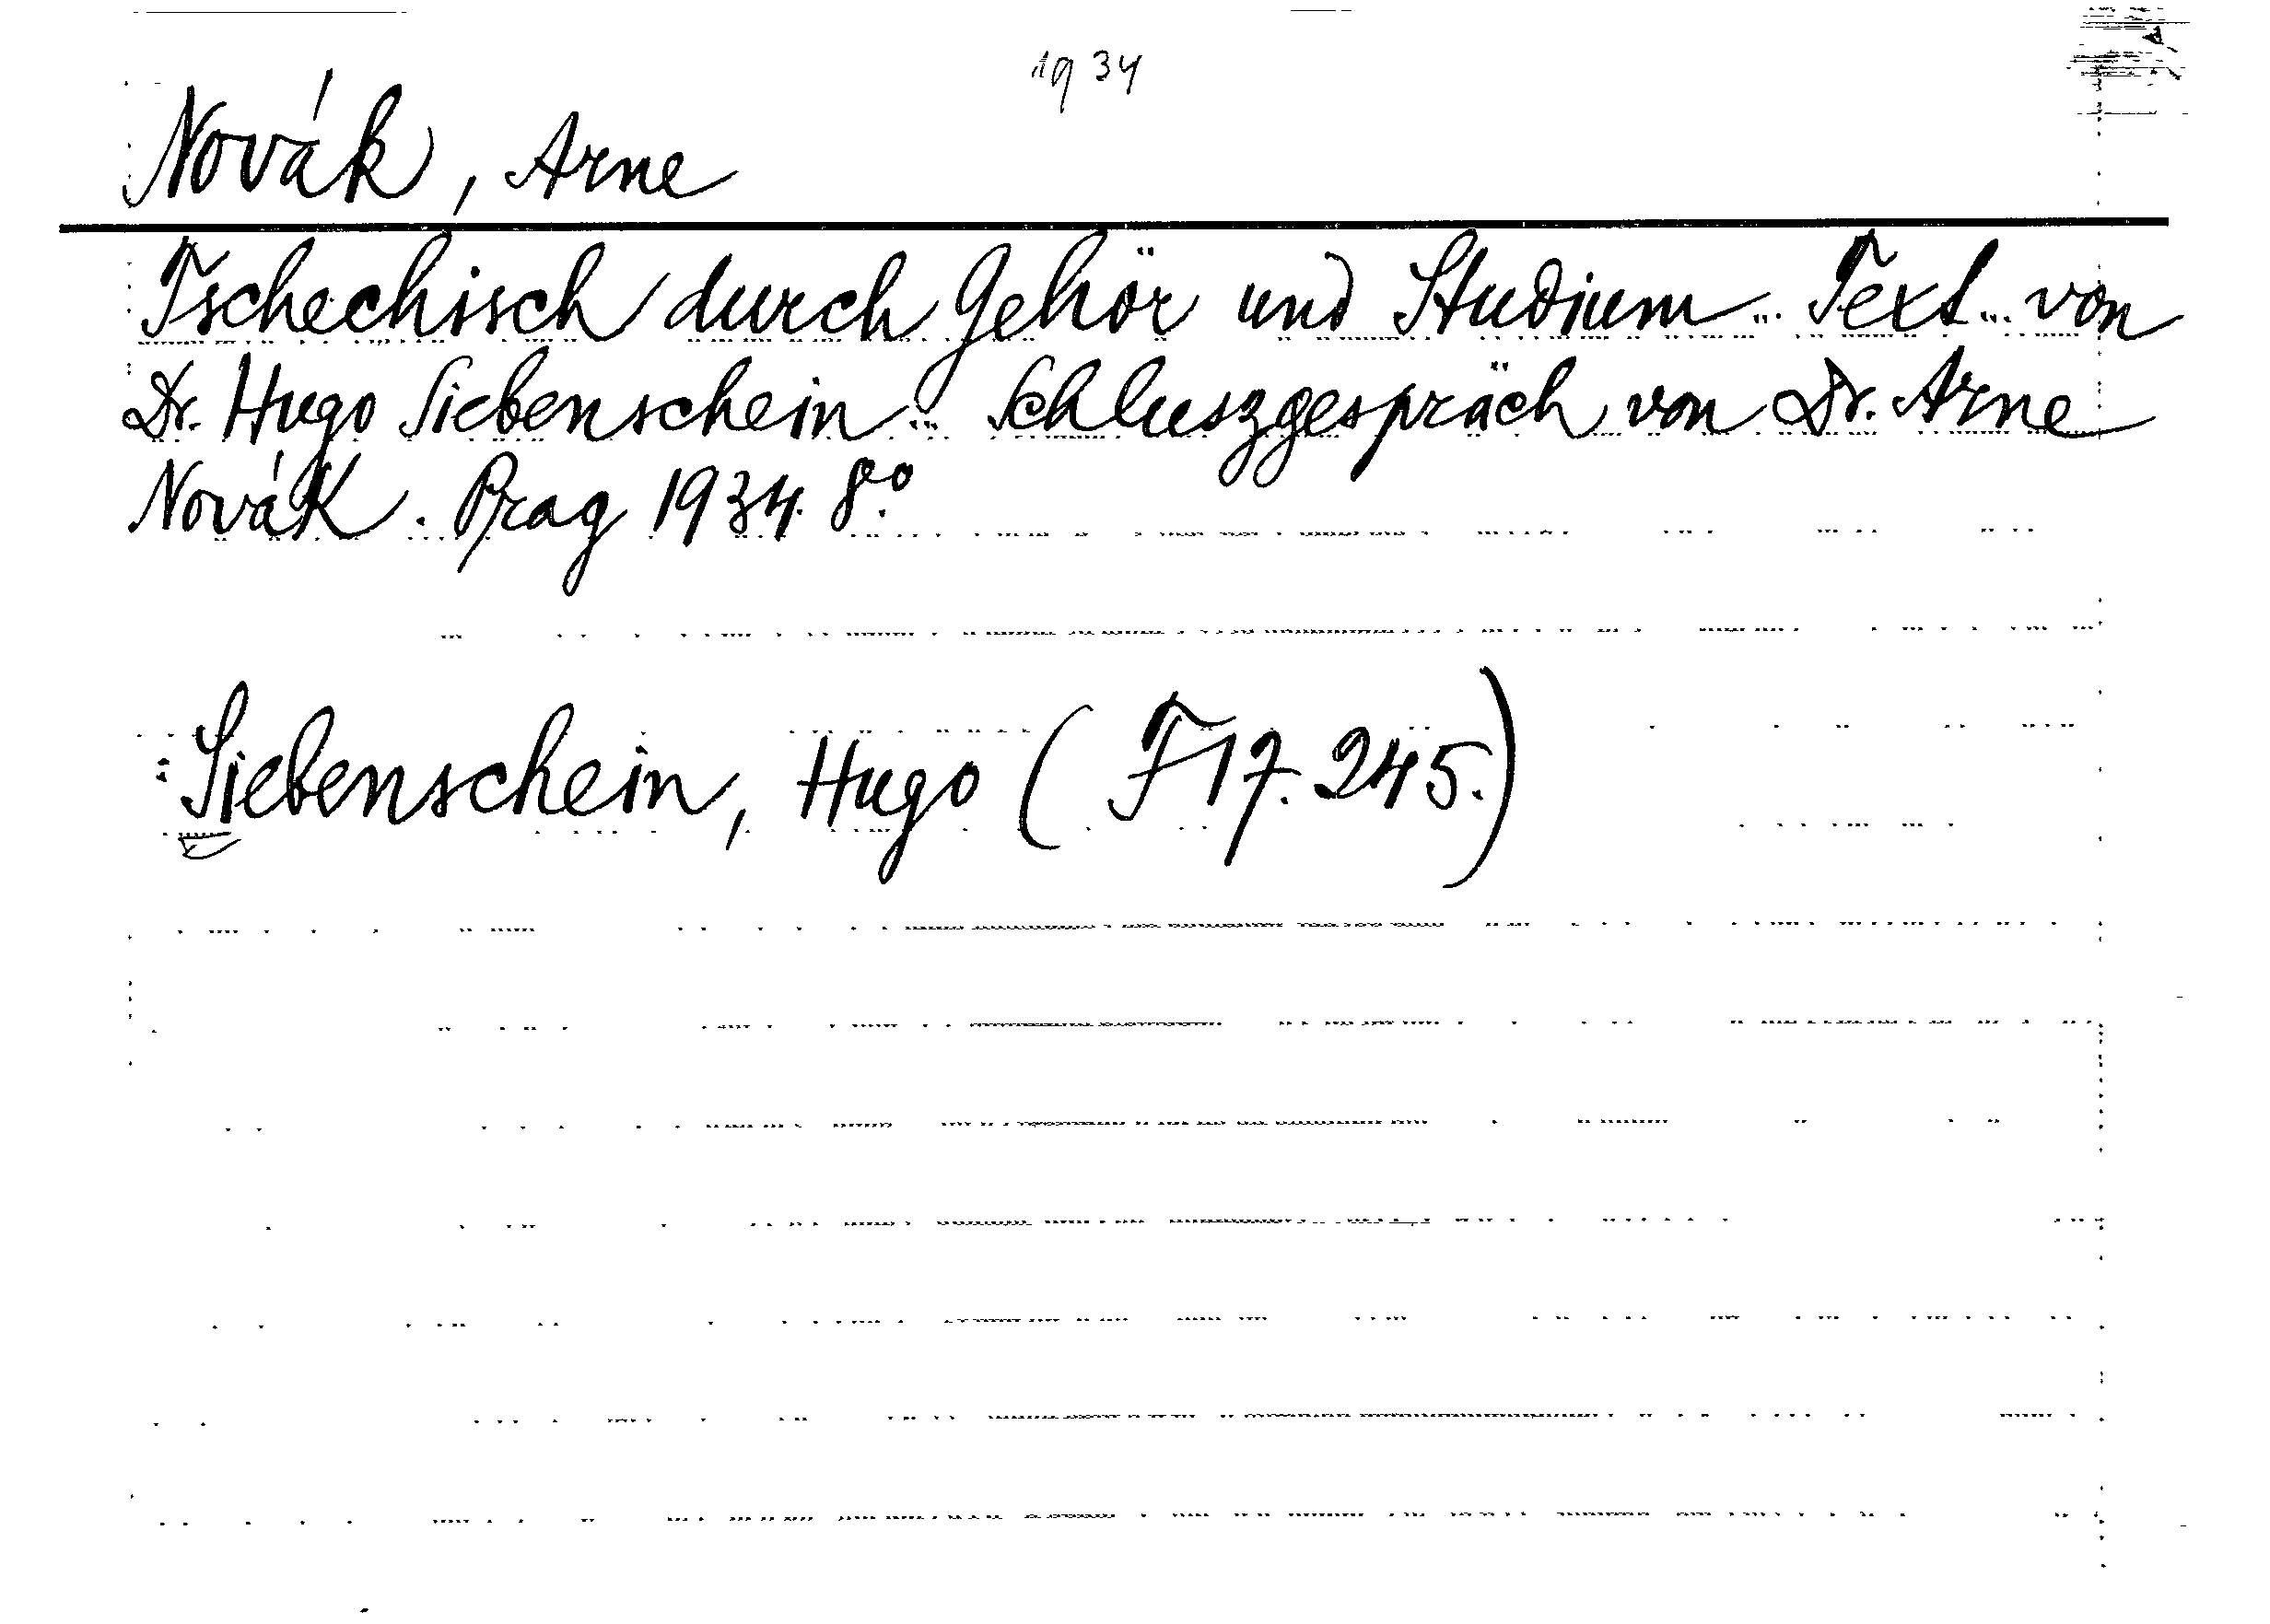 1934
Novák, Arne
Tschechisch durch Gehör und Studium... Text... von
Dr. Hugo Siebenschein... Schluszgespräch von Dr. Arne
Novák. Prag 1934. 8º.
Siebenschein, Hugo (F 17.245.)